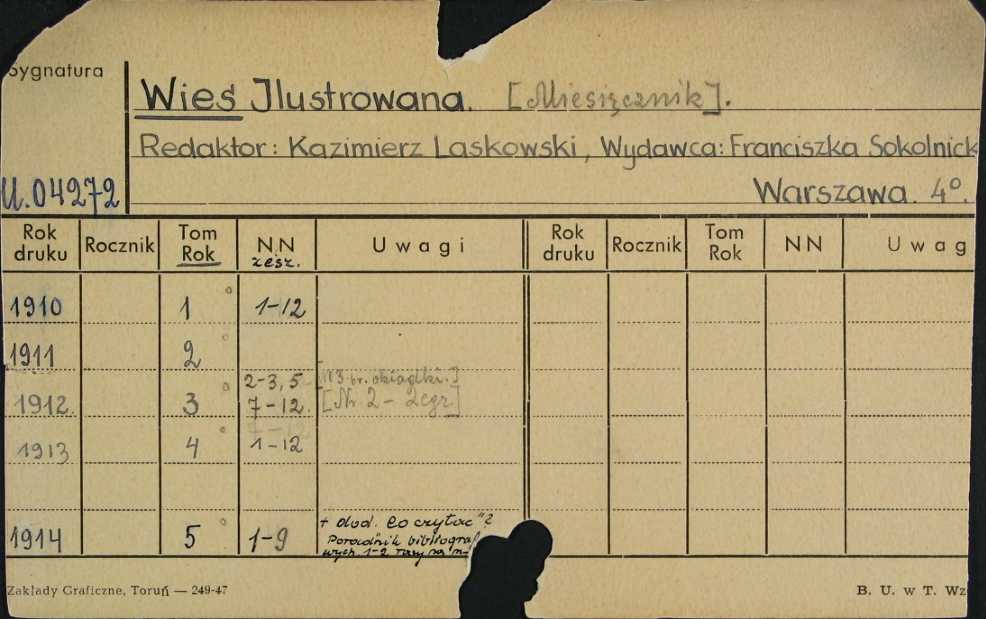 Sygnatura
Wieś Ilustrowana. [Miesięcznik].
Redaktor: Kazimierz Laskowski, Wydawca: Franciszka Sokolnick
U.04272 Warszawa. 4°.
Rok druku Rocznik Tom Rok NN zesz. Uwagi Rok druku Rocznik Tom Rok NN Uwag
1910 1° 1-12
1911 2°
1912. 3° 2-3, 5. 7-12. [Nr 3 br. okładki.] [Nr. 2 - 2 egz]
1913 4° 1-12
1914 5° 1-9 + dod. "Co czytać"?
Poradnik bibliograf
wych. 1-2 razy na m-
Zakłady Graficzne, Toruń — 249-47 B. U. w T. Wz